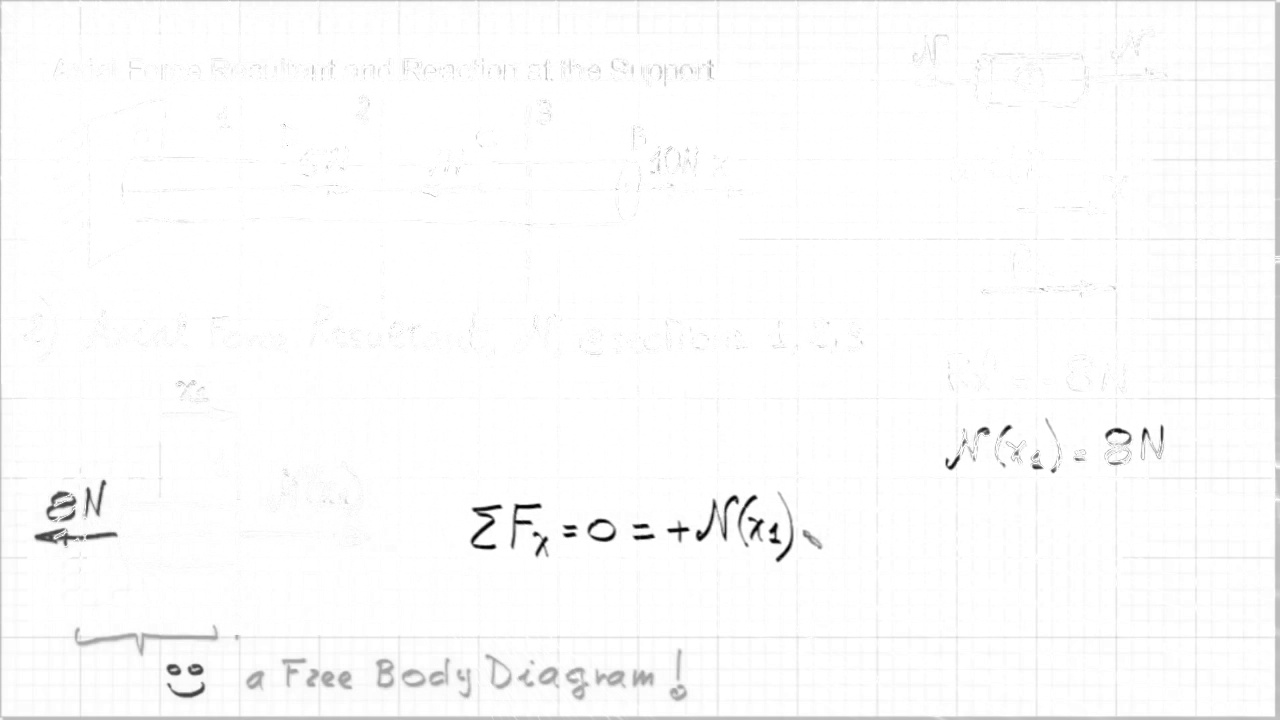 Axial Force Resultant and Reaction at the Support
N N
1 2 3
5N 10N x
2) Axial Force Resultant, N, @ sections 1, 2, 3
x1
N(x1) = 8N
8N N(x1)
ΣFx = 0 = +N(x1)
a Free Body Diagram!